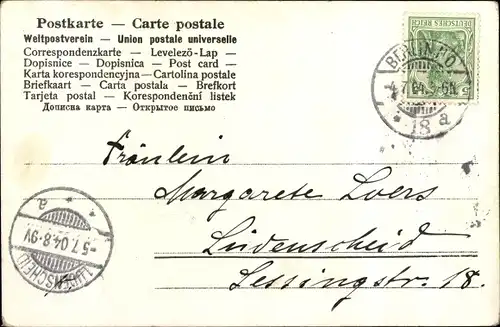 Postkarte — Carte postale
Weltpostverein — Union postale universelle
Correspondenzkarte — Levelező-Lap —
Dopisnice — Dopisnica — Post card —
Karta korespondencyjna—Cartolina postale
Briefkaart — Carta postala — Brefkort
Tarjeta postal — Korespondenční listek
Дописна карта — Открытое письмо
DEUTSCHES REICH
5
BERLIN NO
4.7.04.
18 a
Fräulein
Margarete Loers
Lüdenscheid
Lessingstr. 18.
a
-5.7.04.8-9V
LÜDENSCHEID